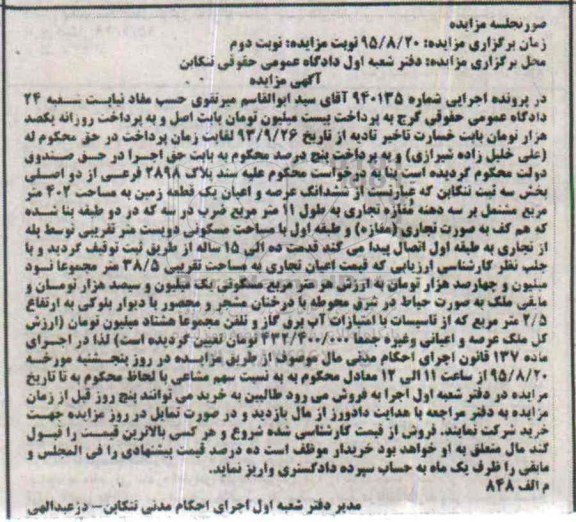 صورتجلسه مزایده
زمان برگزاری مزایده: ۹۵/۸/۲۰ نوبت مزایده: نوبت دوم
محل برگزاری مزایده: دفتر شعبه اول دادگاه عمومی حقوقی تنکابن
آگهی مزایده
در پرونده اجرایی شماره ۹۴۰۱۳۵ آقای سید ابوالقاسم میرتقوی حسب مفاد نیابت شعبه ۲۴
دادگاه عمومی حقوقی کرج به پرداخت بیست میلیون تومان بابت اصل و به پرداخت روزانه یکصد
هزار تومان بابت خسارت تاخیر تادیه از تاریخ ۹۳/۹/۲۶ لغایت زمان پرداخت در حق محکوم له
(علی خلیل زاده شیرازی) و به پرداخت پنج درصد محکوم به بابت حق اجرا در حق صندوق
دولت محکوم گردیده است بنا به درخواست محکوم علیه سند پلاک ۲۸۹۸ فرعی از دو اصلی
بخش سه ثبت تنکابن که عبارتست از ششدانگ عرصه و اعیان یک قطعه زمین به مساحت ۴۰۲ متر
مربع مشتمل بر سه دهنه مغازه تجاری به طول ۱۱ متر مربع ضرب در سه که در دو طبقه بنا شده
که هم کف به صورت تجاری (مغازه) و طبقه اول با مساحت مسکونی دویست متر تقریبی توسط پله
از تجاری به طبقه اول اتصال پیدا می کند قدمت ده الی ۱۵ ساله از طریق ثبت توقیف گردید و با
جلب نظر کارشناسی ارزیابی که قیمت اعیان تجاری به مساحت تقریبی ۳۸/۵ متر مجموعا نود
میلیون و چهارصد هزار تومان به ارزش هر متر مربع مسکونی یک میلیون و سیصد هزار تومان و
مابقی ملک به صورت حیاط در شرق محوطه با درختان مشجر و محصور با دیوار بلوکی به ارتفاع
۲/۵ متر مربع که از تاسیسات با امتیازات آب برق گاز و تلفن مجموعا هشتاد میلیون تومان (ارزش
کل ملک عرصه و اعیانی وغیره جمعا ۴۳۲/۴۰۰/۰۰۰ تومان تعیین گردیده است) لذا در اجرای
ماده ۱۳۷ قانون اجرای احکام مدنی مال موصوف از طریق مزایده در روز پنجشنبه مورخه
۹۵/۸/۲۰ از ساعت ۱۱ الی ۱۲ معادل محکوم به به نسبت سهم مشاعی با لحاظ محکوم به تا تاریخ
مزایده در دفتر شعبه اول اجرا به فروش می رود طالبین به خرید می توانند پنج روز قبل از زمان
مزایده به دفتر مراجعه با هدایت دادورز از مال بازدید و در صورت تمایل در روز مزایده جهت
خرید شرکت نمایند. فروش از قیمت کارشناسی شده شروع و هر کسی بالاترین قیمت را قبول
کند مال متعلق به او خواهد بود خریدار موظف است ده درصد قیمت پیشنهادی را فی المجلس و
مابقی را ظرف یک ماه به حساب سپرده دادگستری واریز نماید.
م الف ۸۴۸
مدیر دفتر شعبه اول اجرای احکام مدنی تنکابن– دزعبدالهی